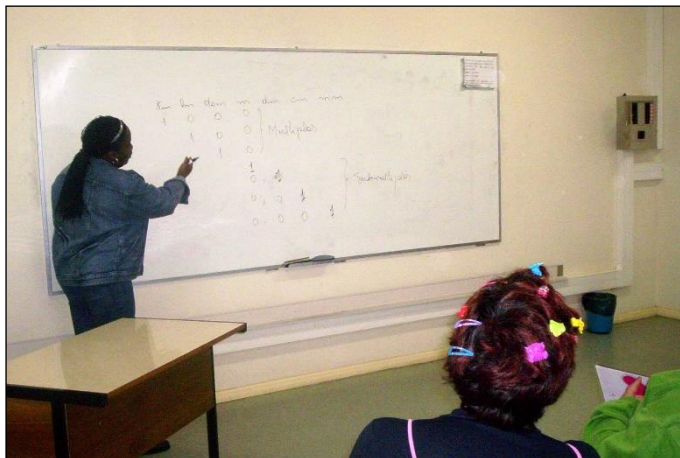 Km hm dam m dm cm mm
1 0 0 0
1 0 0 Multiplos
1 0
1
0, 1
0, 0 1 Submultiplos
0, 0 0 1